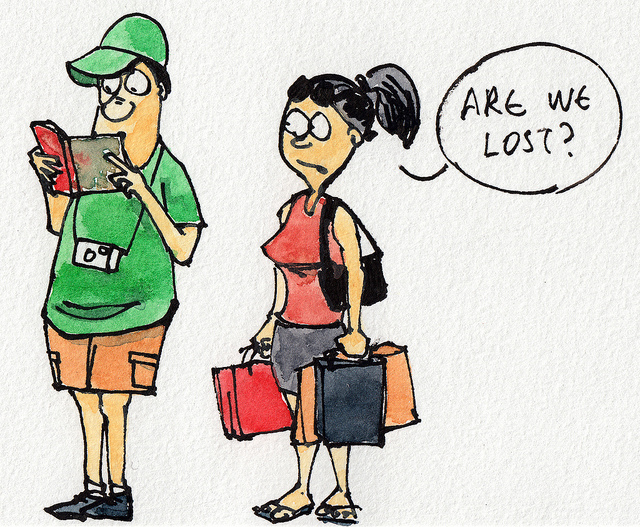 ARE WE
LOST?